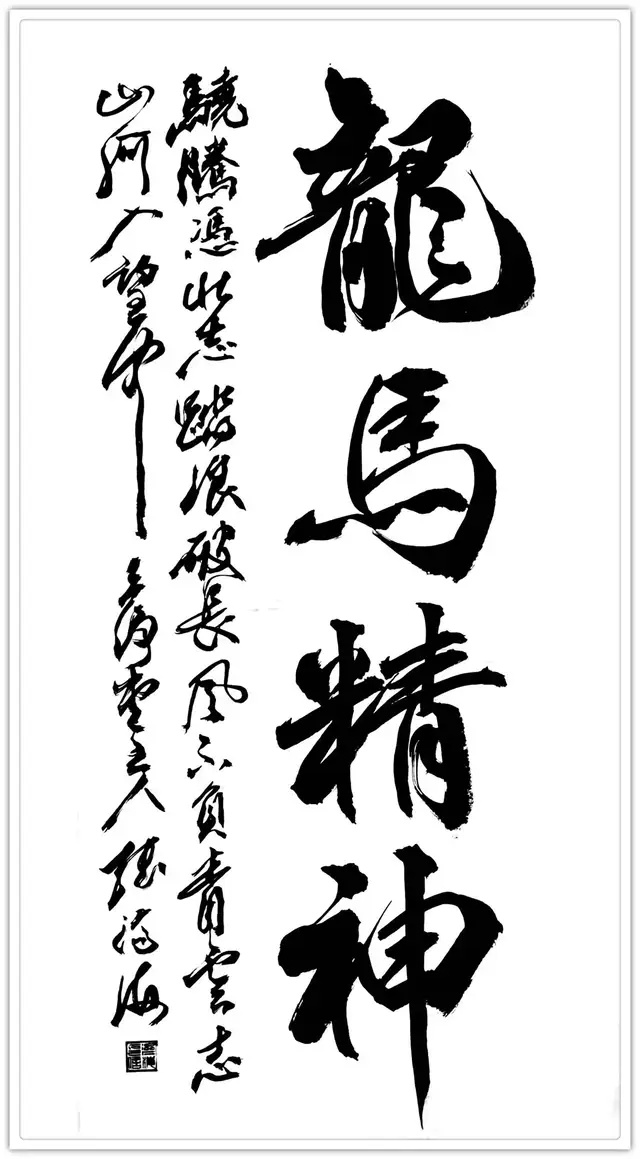 龍馬精神
驍騰憑壯志踏浪破長風不負青雲志
山河入望中 主人張海